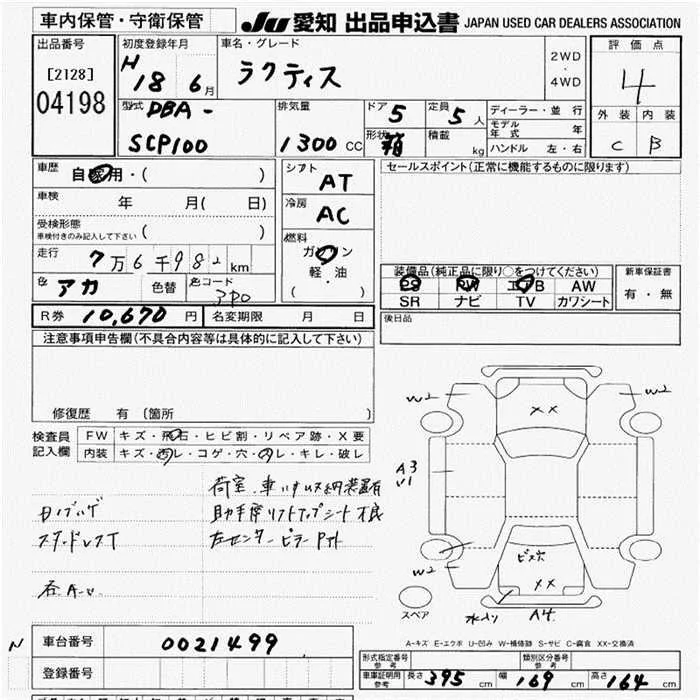 車内保管・守衛保管
JU 愛知 出品申込書 JAPAN USED CAR DEALERS ASSOCIATION
出品番号
[2128]
04198
初度登録年月
H 18 6月
車名・グレード
ラクティス
2WD
・
4WD
評価点
4
外装 内装
C B
型式 DBA-
SCP100
排気量
1300 CC
ドア 5
形状 箱
定員 5人
積載 kg
ディーラー・並行
モデル年式 年
ハンドル 左・右
車歴 自家用・( )
車検 年 月( 日)
受検形態
車検付きのみ記入して下さい ( )
走行 7万6千982km
色 アカ 色替 色コード 3P0
シフト AT
冷房 AC
燃料
ガソリン
軽・油
( )
セールスポイント(正常に機能するものに限ります)
装備品(純正品に限り○をつけてください)
PS PW エアB AW
SR ナビ TV カワシート
新車保証書
有・無
R券 10,670円 名変期限 月 日
後日品
注意事項申告欄(不具合内容等は具体的に記入して下さい)
修復歴 有 〔箇所 〕
検査員記入欄
FW キズ・飛石・ヒビ割・リペア跡・X要
内装 キズ・汚レ・コゲ・穴・ヌレ・キレ・破レ
荷室、車いす
助手席リフトアップシート不良
左センターピラー
W2
W2
XX
A3
W2
XX
A4
スペア
A-キズ E-エクボ U-凹み W-補修跡 S-サビ C-腐食 XX-交換済
N
車台番号 0021499
登録番号
形式指定番号
参考
類別区分番号
参考
車庫証明用
参考
長さ 395 cm 幅 169 cm 高さ 164 cm